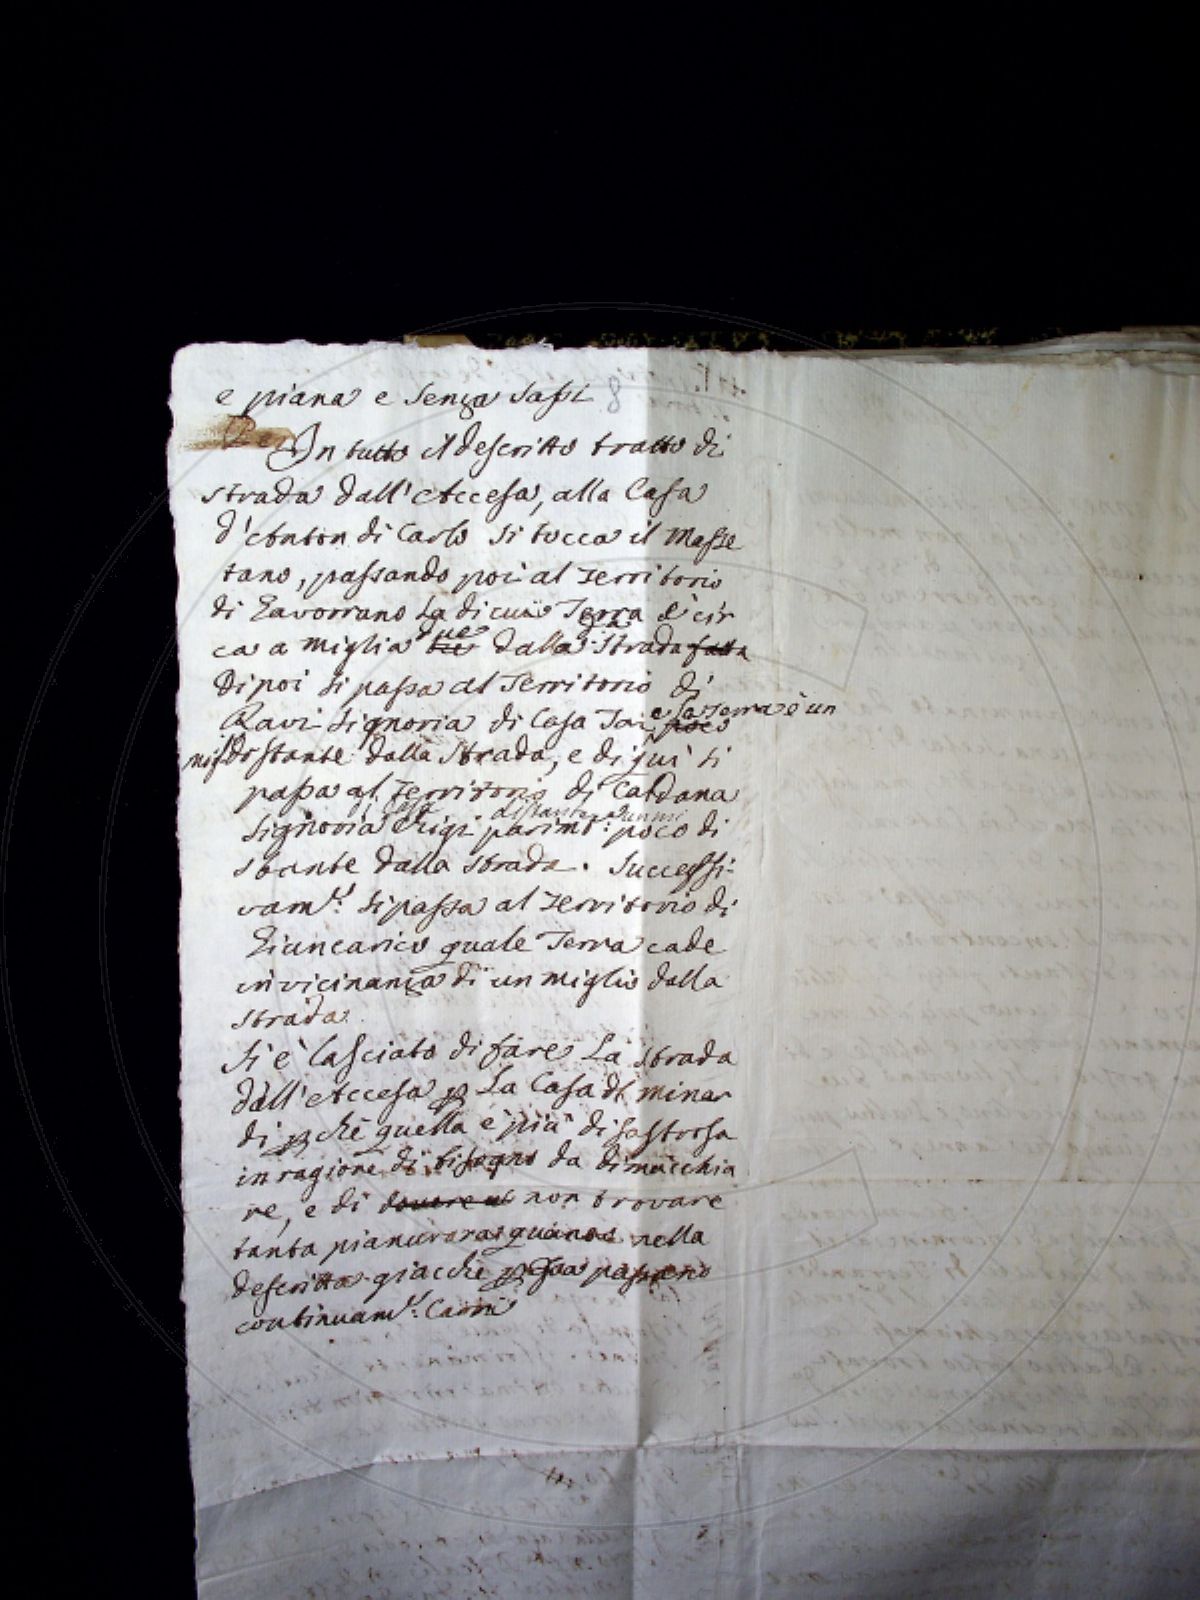 e piana e senza sassi 8
In tutto il descritto tratto di
strada dall'Accesa, alla Casa
d'Anton di Carlo si tocca il Masse
tano, passando poi al Territorio
di Gavorrano la di cui Terra è cir
ca a miglia tre due dalla Strada fatta
Dipoi si passa al Territorio di
e la Terra è un
Ravi Signoria di Casa poco
distante dalla Strada, e di qui si
passa al Territorio di Caldana
di Casa distante un mi
Signoria Chigi parimte: poco di
stante dalla strada. Successi-
vamte: si passa al Territorio di
Giuncarico quale Terra cade
in vicinanza di un miglio dalla
strada.
Si è lasciato di fare La strada
dall'Accesa p La Casa di minar
di pchè quella è più disastrosa
in ragione di bisogno da dimacchia
re, e di dovere non trovare
tanta pianura quanto nella
descritta giacchè p passano
continuamte: Carri